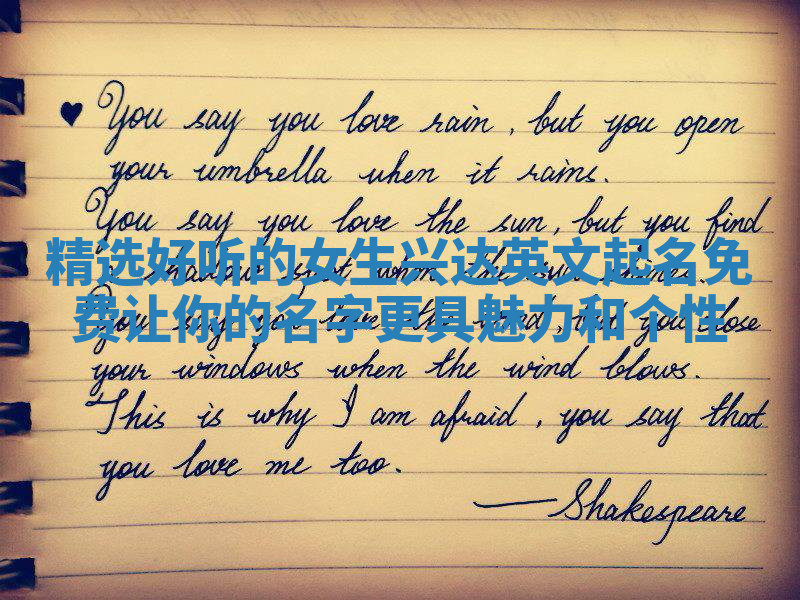 ♥ You say you love rain, but you open
your umbrella when it rains.
You say you love the sun, but you find
精选好听的女生兴达英文起名免
a shadow spot when the sun shines.
费让你的名字更具魅力和个性
You say you love the wind, but you close
your windows when the wind blows.
This is why I am afraid, you say that
you love me too.
—Shakespeare